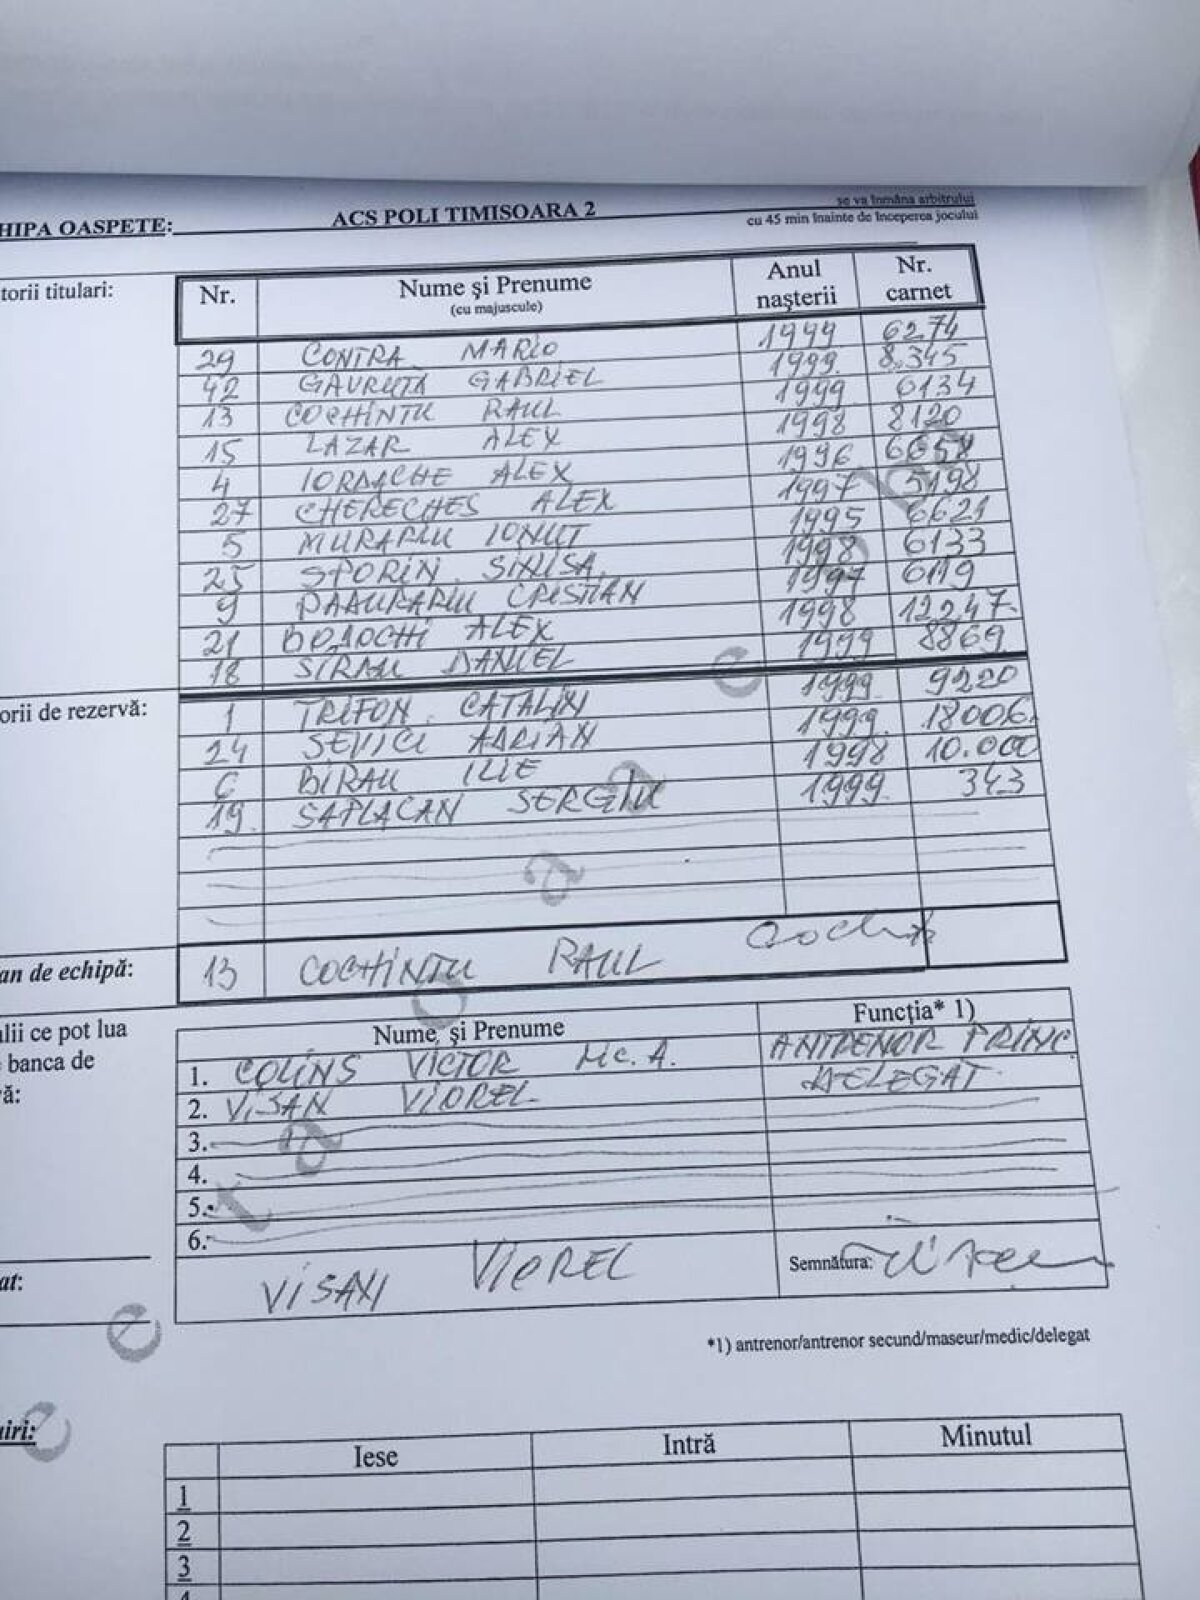 HIPA OASPETE: ACS POLI TIMISOARA 2 se va înmâna arbitrului
cu 45 min înainte de începerea jocului
torii titulari:
Nr. Nume şi Prenume (cu majuscule) Anul naşterii Nr. carnet
29 CONTRA MARIO 1999 6274
42 GAVRUTA GABRIEL 1999 8.345
13 COCHINTU RAUL 1999 6134
15 LAZAR ALEX 1998 8120
4 IORDACHE ALEX 1996 6658
27 CHERECHES ALEX 1997 5198
5 MURARIU IONUT 1995 6621
25 SPORIN SINISA 1998 6133
9 PADURARIU CRISTIAN 1997 6119
21 ALEX 1998 12247
18 DANIEL 1999 8869
orii de rezervă:
1 TRIFON CATALIN 1999 9220
24 SEVICI ADRIAN 1999 18006
6 BIRAU ILIE 1998 10.000
19 SAPLACAN SERGIU 1999 343
an de echipă: 13 COCHINTU RAUL
alii ce pot lua
banca de
vă:
Nume şi Prenume Funcţia* 1)
1. COLINS VICTOR Mc. A. ANTRENOR PRINC
2. VISAN VIOREL DELEGAT
3.
4.
5.
6.
at: VISAN VIOREL Semnătura:
*1) antrenor/antrenor secund/maseur/medic/delegat
uiri:
Iese Intră Minutul
1
2
3
4